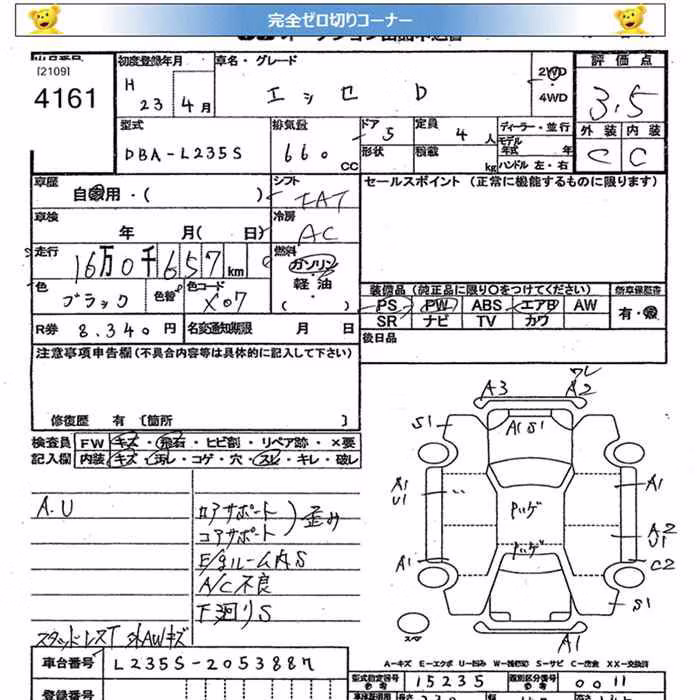 完全ゼロ切りコーナー
[2109]
4161
初度登録年月
H 23年4月
車名・グレード
エッセ D
2WD
4WD
評価点
3.5
外装 内装
C C
型式
DBA-L235S
排気量
660 CC
ドア 5
形状
定員 4人
積載 kg
ディーラー・並行
モデル年式 年
ハンドル 左・右
車歴
自家用・( )
シフト
IAT
車検
年 月( 日)
冷房
AC
走行
16万0千657km
燃料
ガソリン
軽油
( )
色
ブラック
色替
色コード
X07
R券 8,340円
名変通知期限 月 日
セールスポイント (正常に機能するものに限ります)
装備品 (純正品に限り○をつけてください)
PS PW ABS エアB AW
SR ナビ TV カワ
新車保証書
有・無
後日品
注意事項申告欄(不具合内容等は具体的に記入して下さい)
修復歴 有 [箇所 ]
検査員記入欄
FW キズ・飛石・ヒビ割・リペア跡・×要
内装 キズ・汚レ・コゲ・穴・スレ・キレ・破レ
A.U
ロアサポート
コアサポート
歪み
E/gルーム内S
A/C不良
下廻りS
スタッドレスT 外AWキズ
車台番号 L235S-2053887
登録番号
A3
ワレ
A2
S1
A1 S1
A1
U1
A1
ハゲ
A2
U1
ハゲ
A1
C2
S1
A1
A-キズ E-エクボ U-凹み W-補修跡 S-サビ C-腐食 XX-交換済
型式指定番号 参考 15235
類別区分番号 参考 0011